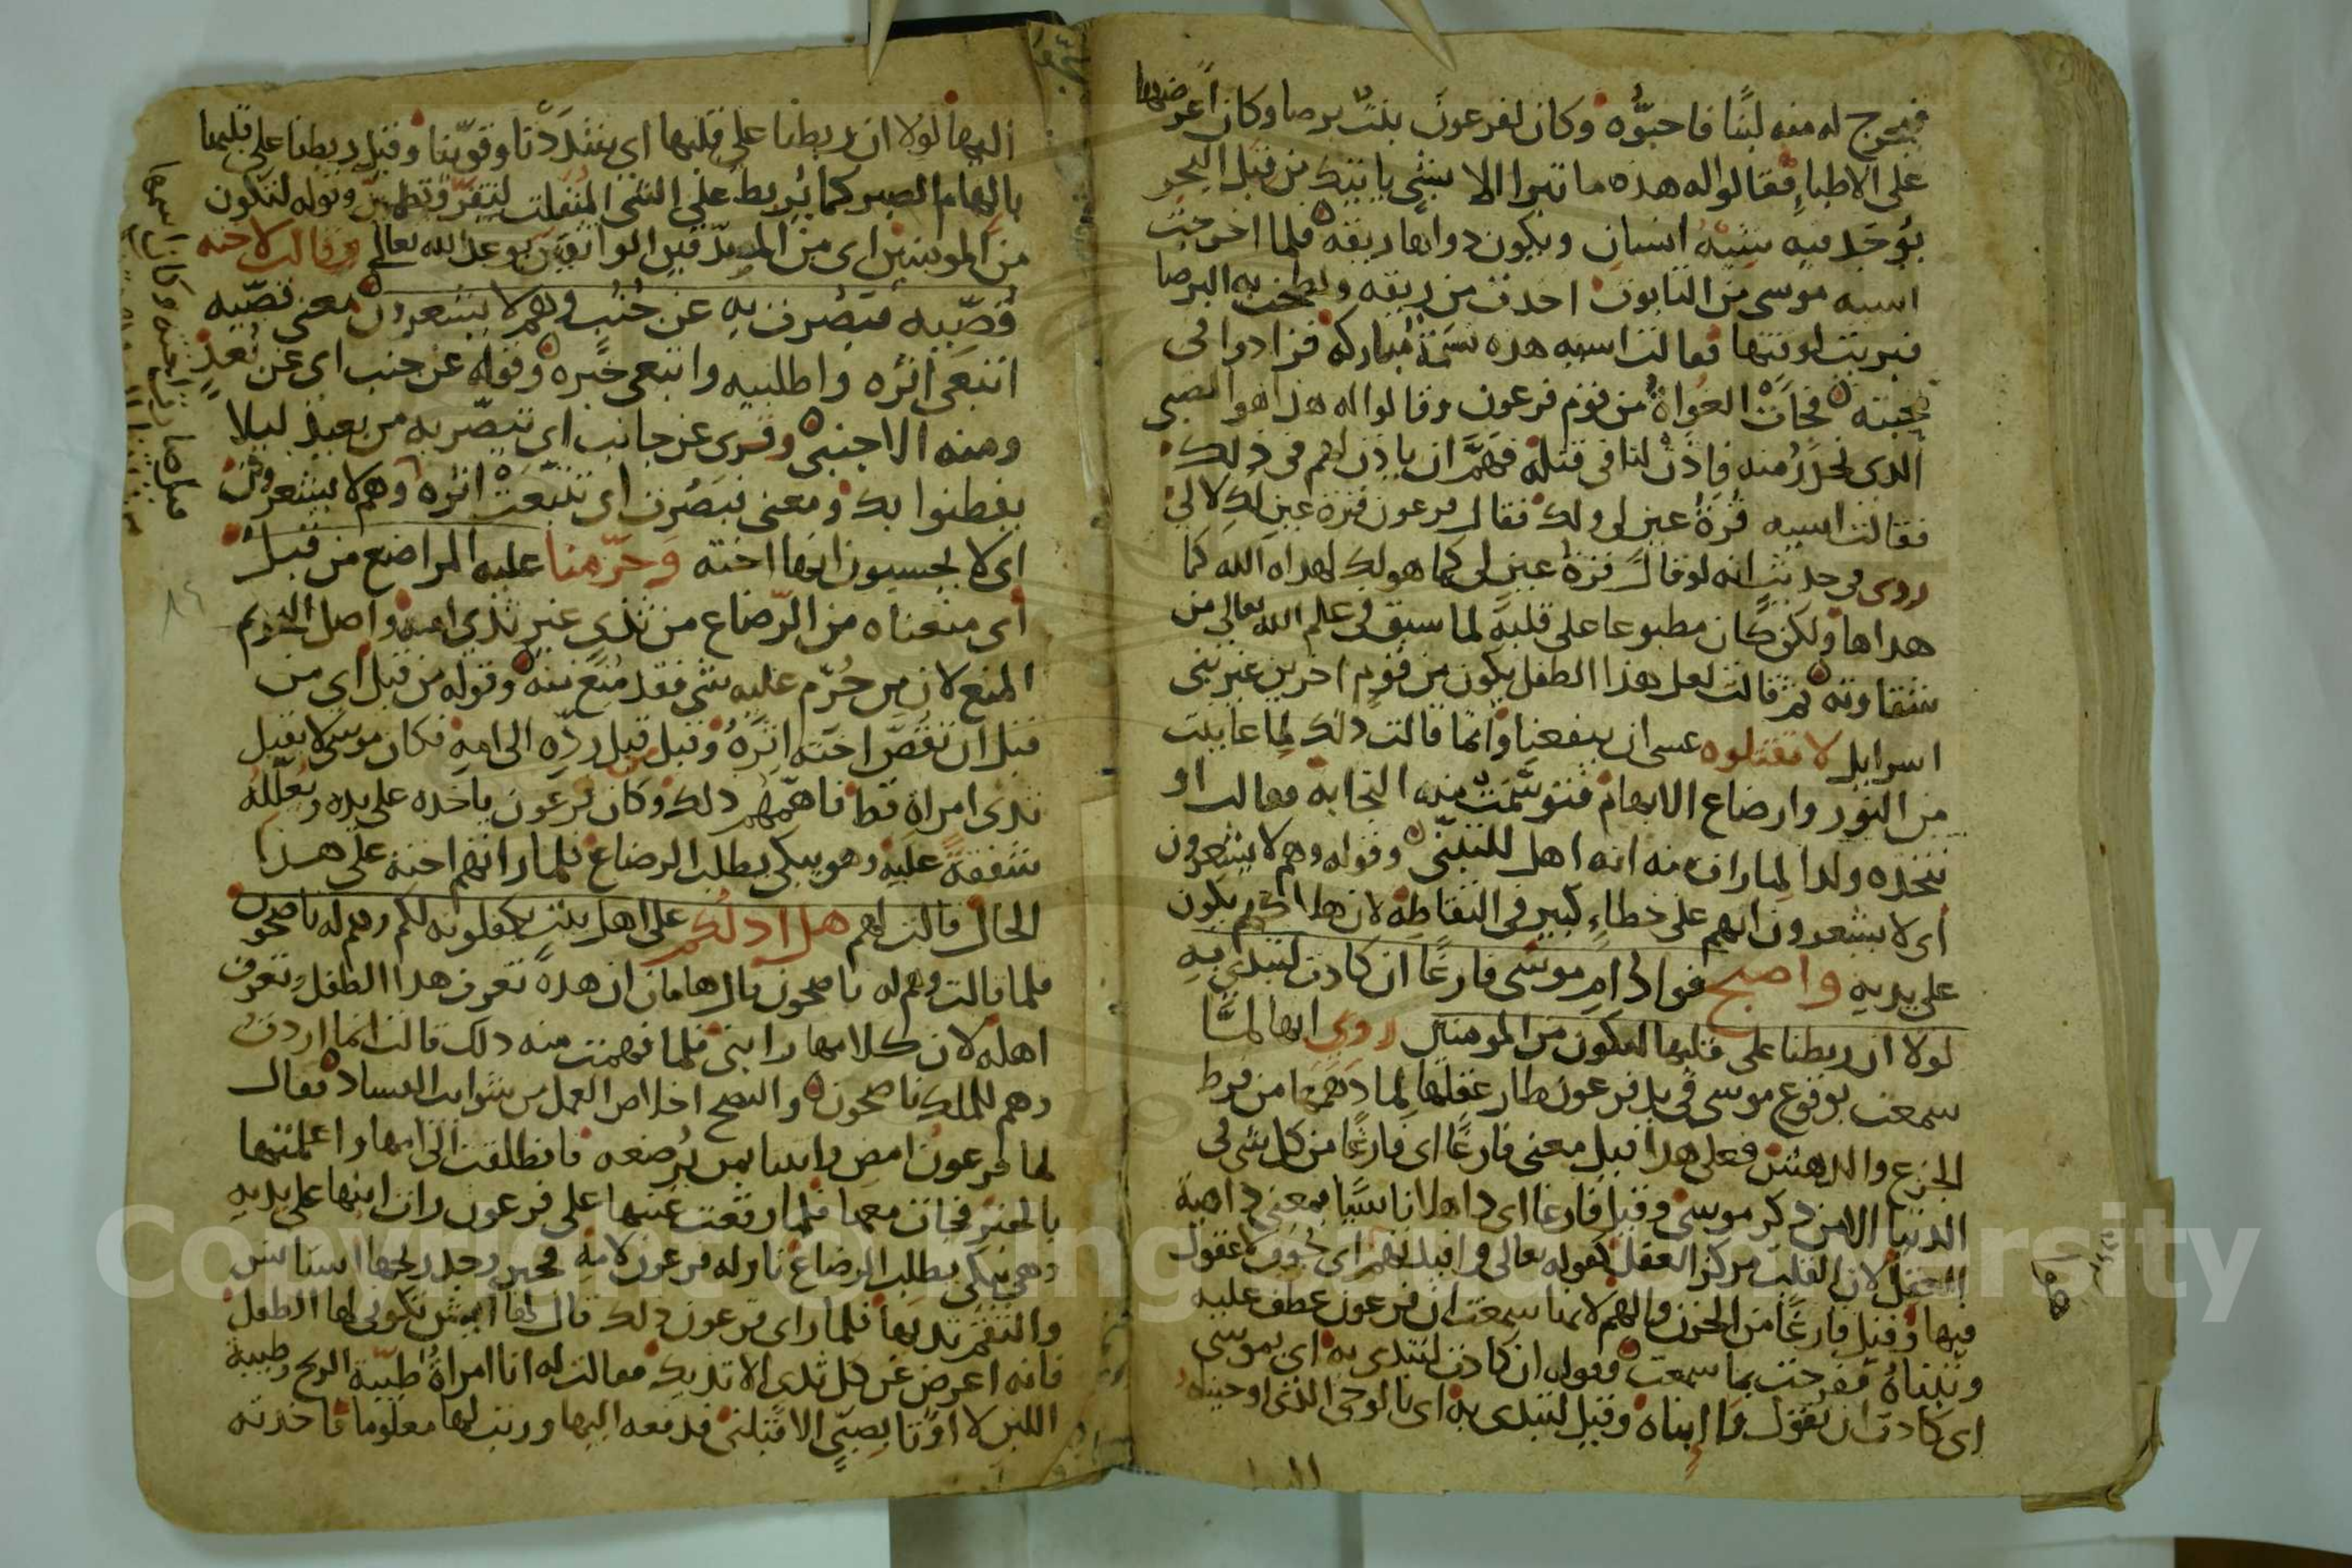 فيخرج له منه لبنًا فاحبوه وكان لفرعون بنت برصا وكان اعرضها
على الاطباء فقالوا له هذه ما تبرا الا بشي ياتيك من قبل البحر
يؤخذ فيه شبه انسان ويكون دواها ريقه فلما اخرجت
اسيه موسى من التابوت اخذت من ريقه ولطخت به البرصا
فبريت لوقتها فقالت اسيه هذه نسمة مباركة فزادوا في
محبته فجات الغواة من قوم فرعون وقالوا له هذا هو الصبي
الذي نحذر منه فاذن لنا في قتله فهم ان ياذن لهم في ذلك
فقالت اسيه قرة عين لي ولك فقال فرعون قرة عين لك لا لي
روى في حديث انه لو قال قرة عين لي كما هو لك لهداه الله كما
هداها ولكن كان مطبوعا على قلبه لما سبق في علم الله تعالى من
شقاوته ثم قالت لعل هذا الطفل يكون من قوم اخرين غير بني
اسرايل لا تقتلوه عسى ان ينفعنا وانما قالت ذلك لما عاينت
من النور وارضاع الابهام فتوسمت منه النجابه فقالت او
نتخذه ولدا لما رات منه انه اهل للتبني وقوله وهم لا يشعرون
اى لا يشعرون انهم على خطاء كبير في التقاطه لان هلاكهم يكون
على يديه واصبح فواد ام موسى فارغًا ان كادت لتبدي به
لولا ان ربطنا على قلبها لتكون من المومنين روى انها لما
سمعت بوقوع موسى في يد فرعون طار عقلها لما دهمها من فرط
الجزع والدهش فعلى هذا قيل معنى فارغًا اى فارغًا من كل شي في
الدنيا الا من ذكر موسى وقيل فارغا اى ذاهلا ناسيًا بمعنى ذاهبة
العقل لان القلب مركز العقل كقوله تعالى وافيدتهم اى جوف لا عقول
فيها وقيل فارغًا من الحزن والهم لانها سمعت ان فرعون عطف عليه
وتبناه ففرحت بما سمعت فقوله ان كادت لتبدي به اى بموسى
اى كادت ان تقول وا ابناه وقيل لتبدي به اى بالوحي الذي اوحيناه
اليها لولا ان ربطنا على قلبها اى شددنا وقوينا وقيل ربطنا على قلبها
بالهام الصبر كما يربط على الشي المنفلت ليتقر وتطمين وقوله لتكون
من المومنين اى من المصدقين الواثقين بوعد الله تعالى وقالت لاخته
قصيه فبصرت به عن جنب وهم لا يشعرون معنى قصيه
اتبعي اثره واطلبيه واتبعي خبره وقوله عن جنب اى عن بعد
ومنه الاجنبي وقرى عن جانب اى تبصر به من بعيد ليلا
يفطنوا بك ومعنى فبصرت اى تتبعت اثره وهم لا يشعرون
اى لا يحسبون انها اخته وحرمنا عليه المراضع من قبل
اى منعناه من الرضاع من ثدي غير ثدي امه واصل التحريم
المنع لان من حرم عليه شي فقد منع منه وقوله من قبل اى من
قبل ان تقص اخته اثره وقيل قبل رده الى امه فكان موسى لا يقبل
ثدى امراة قط فاهمهم ذلك وكان فرعون ياخذه على يده ويعلله
شفقة عليه وهو يبكي يطلب الرضاع فلما راتهم اخته على هذا
الحال قالت لهم هل ادلكم على اهل بيت يكفلونه لكم وهم له ناصحون
فلما قالت وهم له ناصحون قال هامان ان هذه تعرف هذا الطفل وتعرف
اهله لان كلامها رابني فلما فهمت منه ذلك قالت انما اردت
وهم للملك ناصحون والنصح اخلاص العمل من شوايب الفساد فقال
لها فرعون امض واتينا بمن يرضعه فانطلقت الى امها واعلمتها
بالخبر فجات معها فلما رفعت عينها على فرعون رات ابنها على يديه
وهي يبكي يطلب الرضاع ناوله فرعون لامه فحين وجد ريحها استانس
والتقم ثديها فلما راى فرعون ذلك قال لها ايش تكوني لها الطفل
فانه اعرض عن كل ثدى الا ثديك فقالت له انا امراة طيبة الريح وطيبة
اللبن لا اوتا بصبي الا قبلني فدفعه اليها ورتب لها معلوما فاخذته